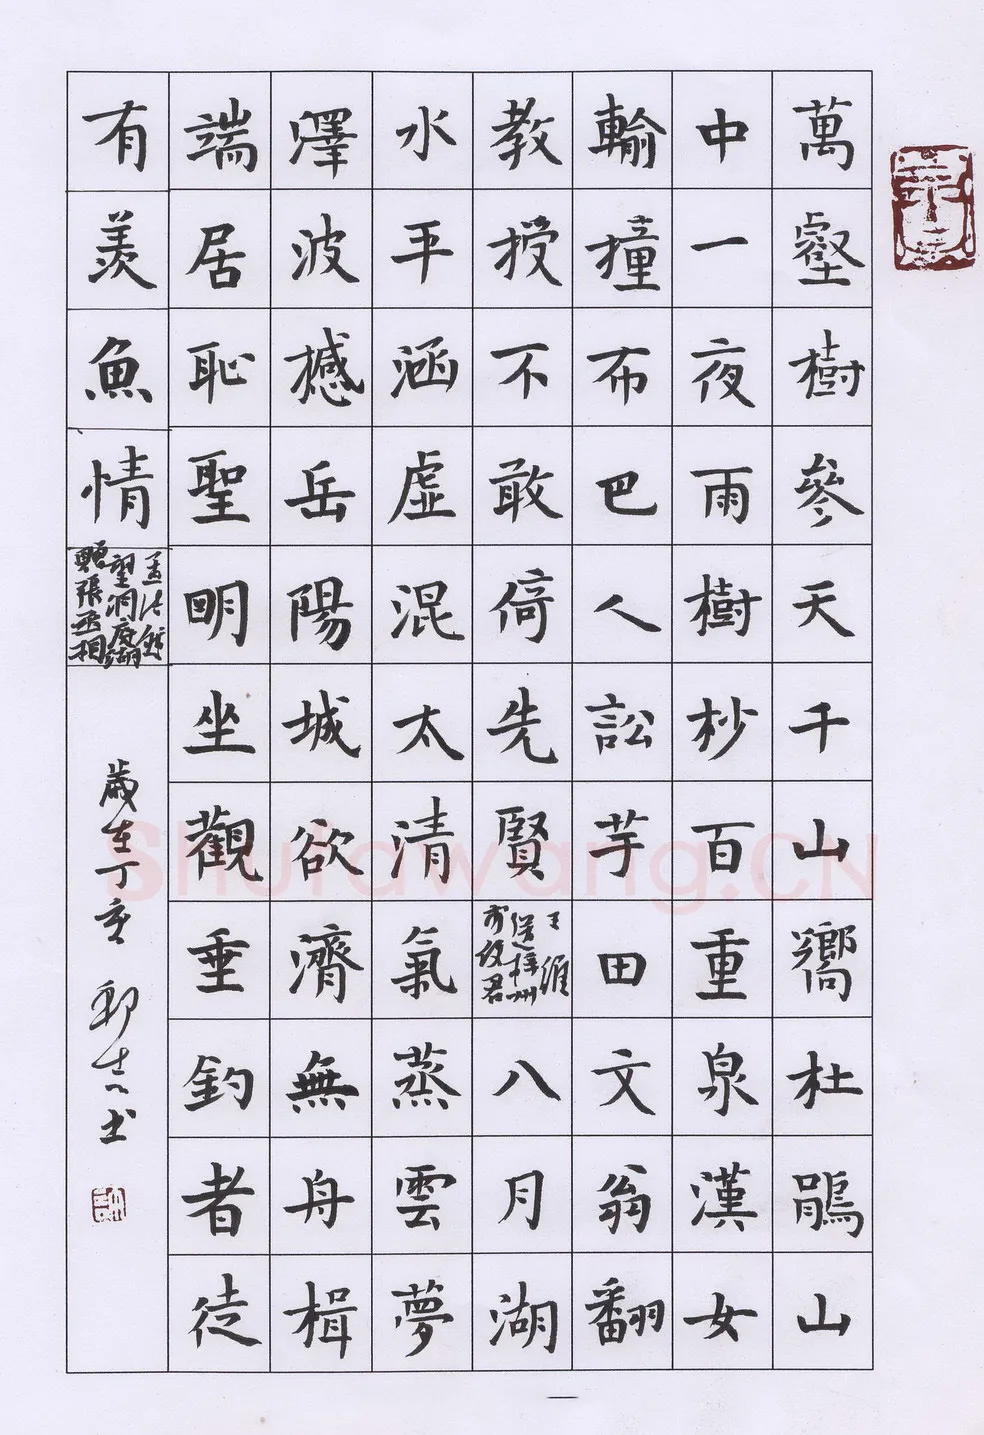 萬壑樹參天千山嚮杜鵑山
中一夜雨樹杪百重泉漢女
輸撞布巴人訟芋田文翁翻
教授不敢倚先賢王維送梓州李使君八月湖
水平涵虛混太清氣蒸雲夢
澤波撼岳陽城欲濟無舟楫
端居恥聖明坐觀垂釣者徒
有羨魚情孟浩然望洞庭湖贈張丞相
歲在丁亥
Shufawang.CN